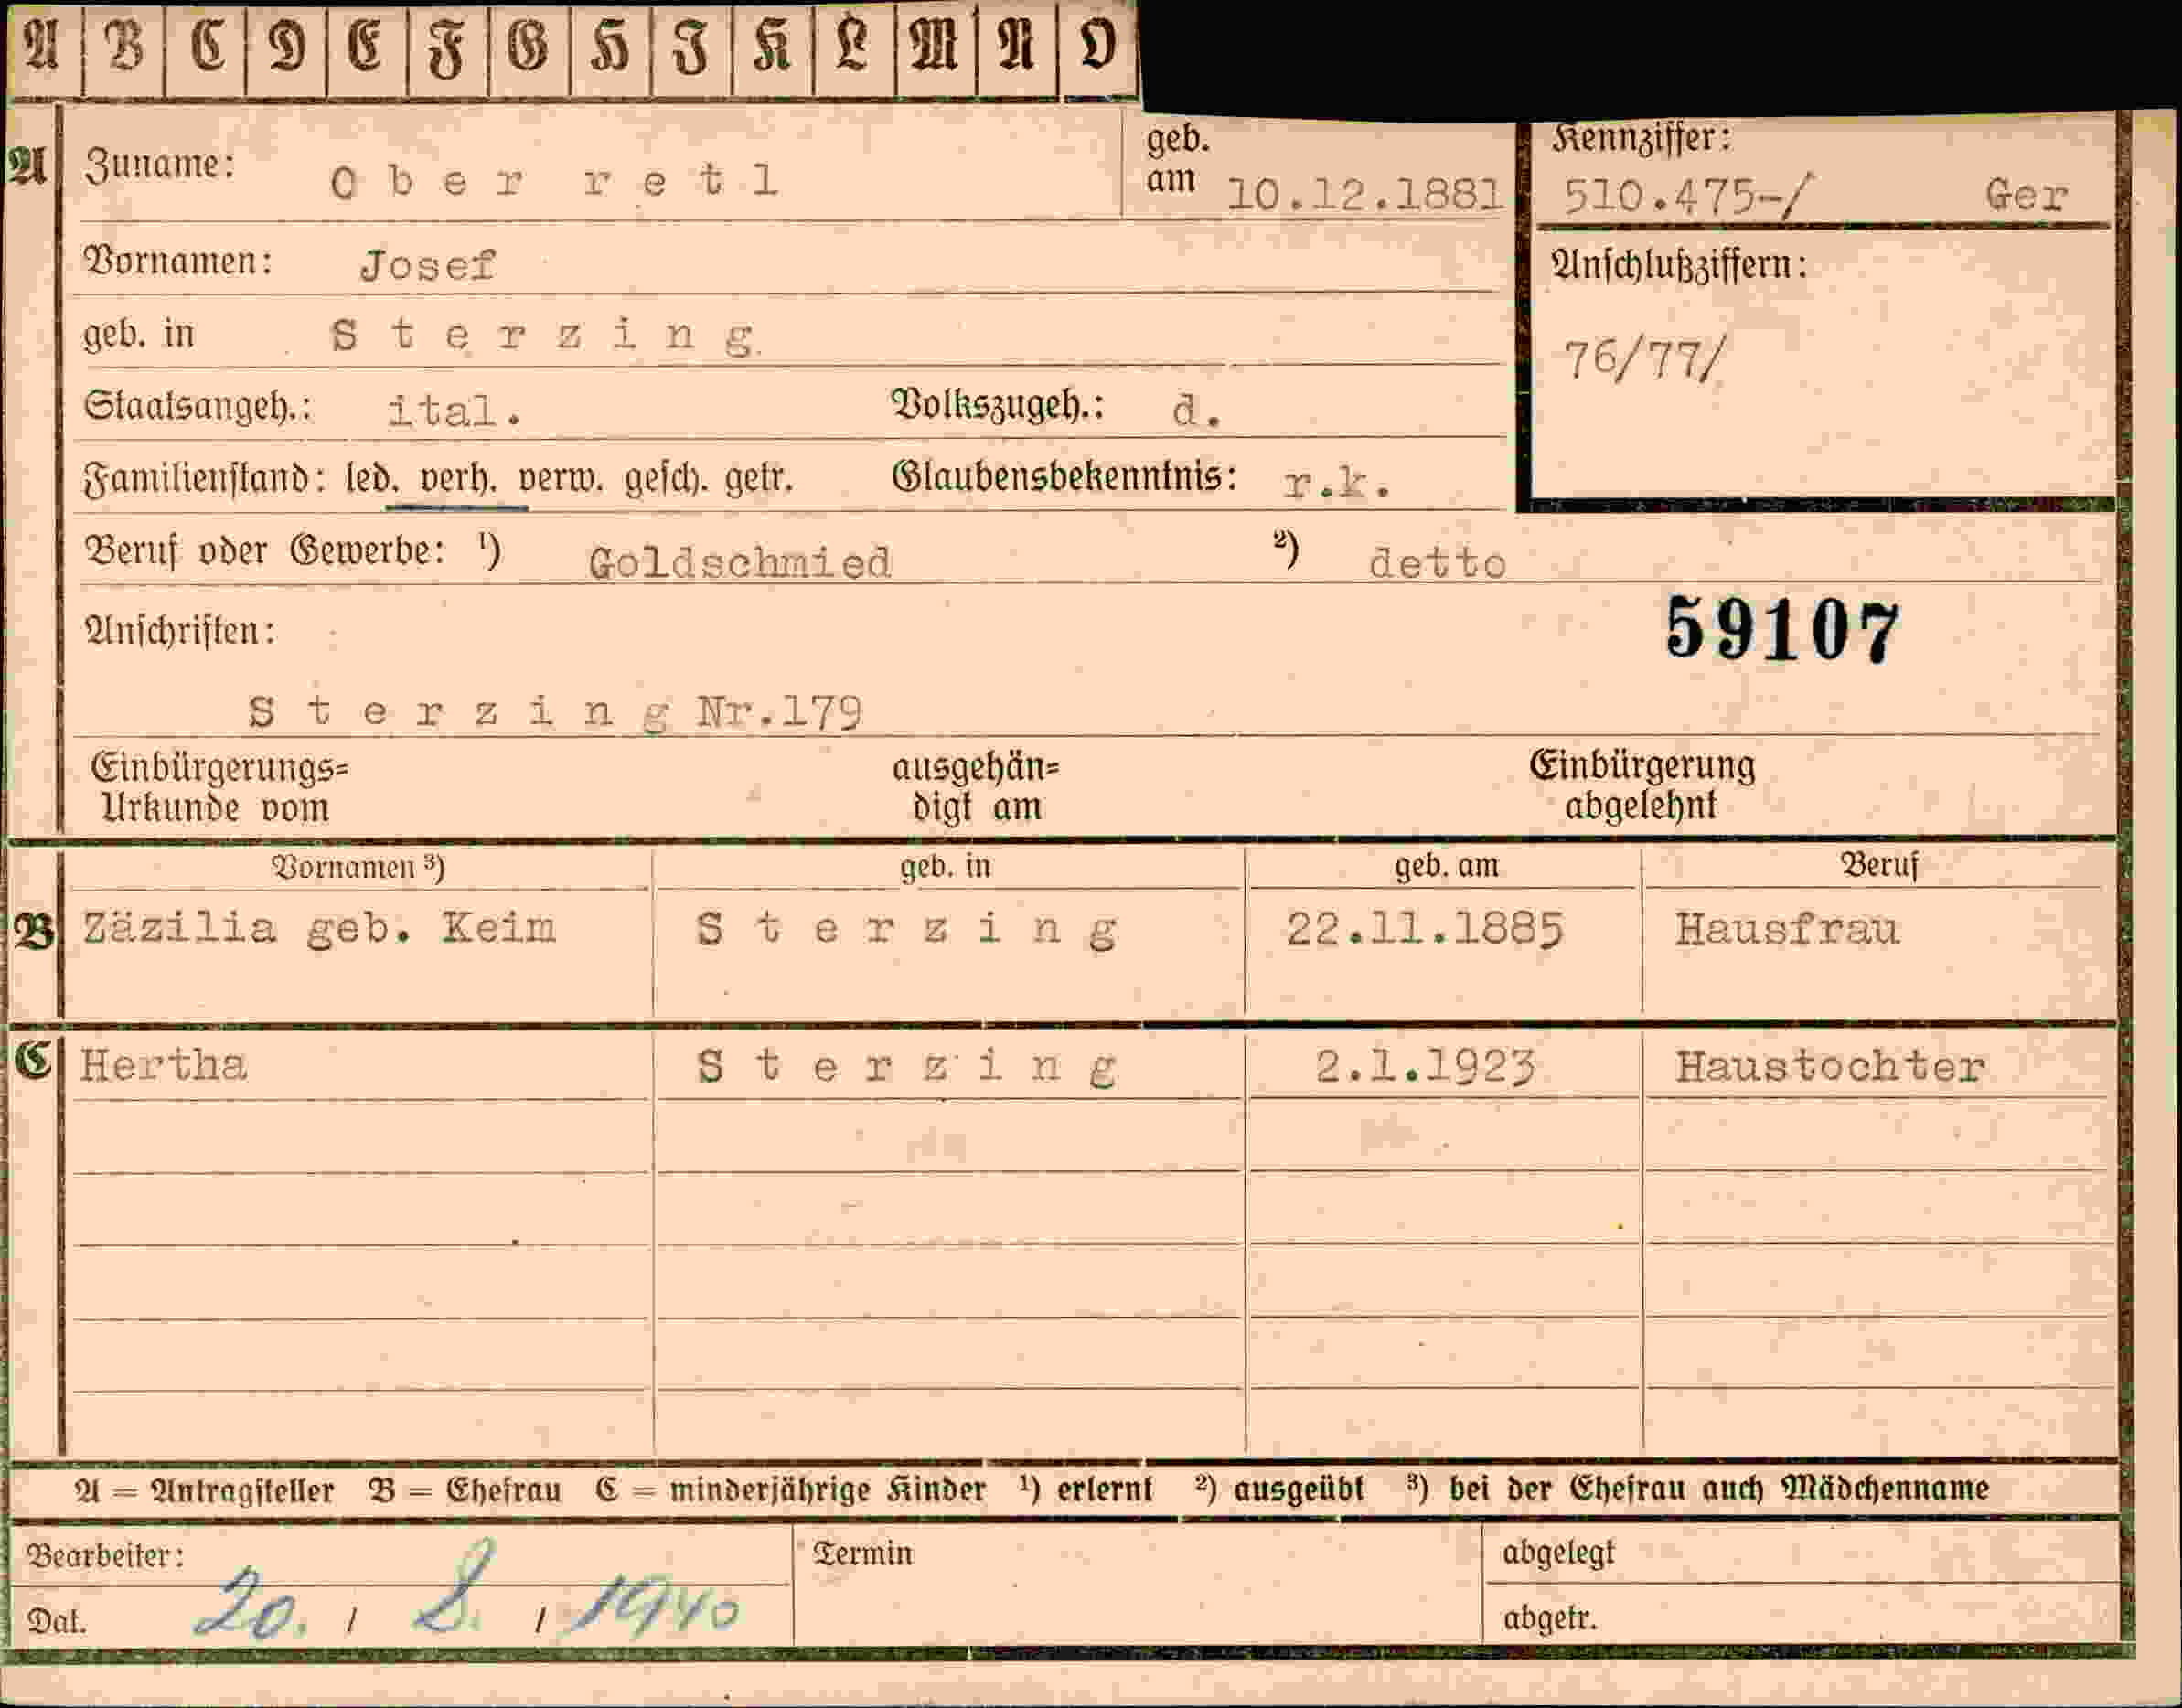 A B C D E F G H I K L M N O
A Zuname: O b e r r e t l geb. am 10.12.1881 Kennziffer: 510.475-/ Ger
Vornamen: Josef Anschlußziffern:
geb. in S t e r z i n g 76/77/
Staatsangeh.: ital. Volkszugeh.: d.
Familienstand: led. verh. verw. gesch. getr. Glaubensbekenntnis: r.k.
Beruf oder Gewerbe: ¹) Goldschmied ²) detto
Anschriften: 59107
S t e r z i n g Nr.179
Einbürgerungs= ausgehän= Einbürgerung
Urkunde vom digt am abgelehnt
Vornamen ³) geb. in geb. am Beruf
B Zäzilia geb. Keim S t e r z i n g 22.11.1885 Hausfrau
C Hertha S t e r z i n g 2.1.1923 Haustochter
A = Antragsteller B = Ehefrau C = minderjährige Kinder ¹) erlernt ²) ausgeübt ³) bei der Ehefrau auch Mädchenname
Bearbeiter: Termin abgelegt
Dat. 20. / 8. / 1940 abgetr.